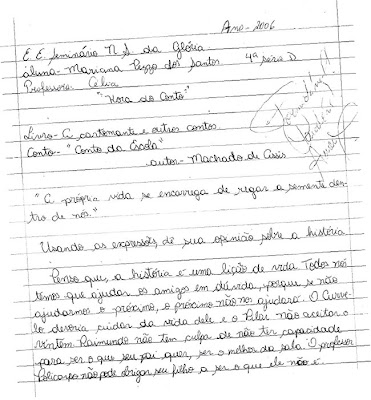 Ano-2006
E.E. Seminário N.S. da Glória
aluna- Mariana Puzzo dos Santos 4ª série D
Professora Célia
"Hora do Conto"
Livro- A cartomante e outros contos
Conto- "Conto da Escola"
autor- Machado de Assis
"A própria vida se encarrega de regar a semente den-
tro de nós."
Usando as expressões de sua opinião sobre a história
Penso que, a história é uma lição de vida Todos nós
temos que ajudar os amigos em dúvida, porque se não
ajudarmos o próximo, o próximo não nos ajudará. O Curve-
lo deveria cuidar da vida dele e o Pilar não aceitar o
vintém. Raimundo não tem culpa de não ter capacidade
para ser o que seu pai quer, ser o melhor da sala. O professor
Policarpo não pode obrigar seu filho a ser o que ele não é.